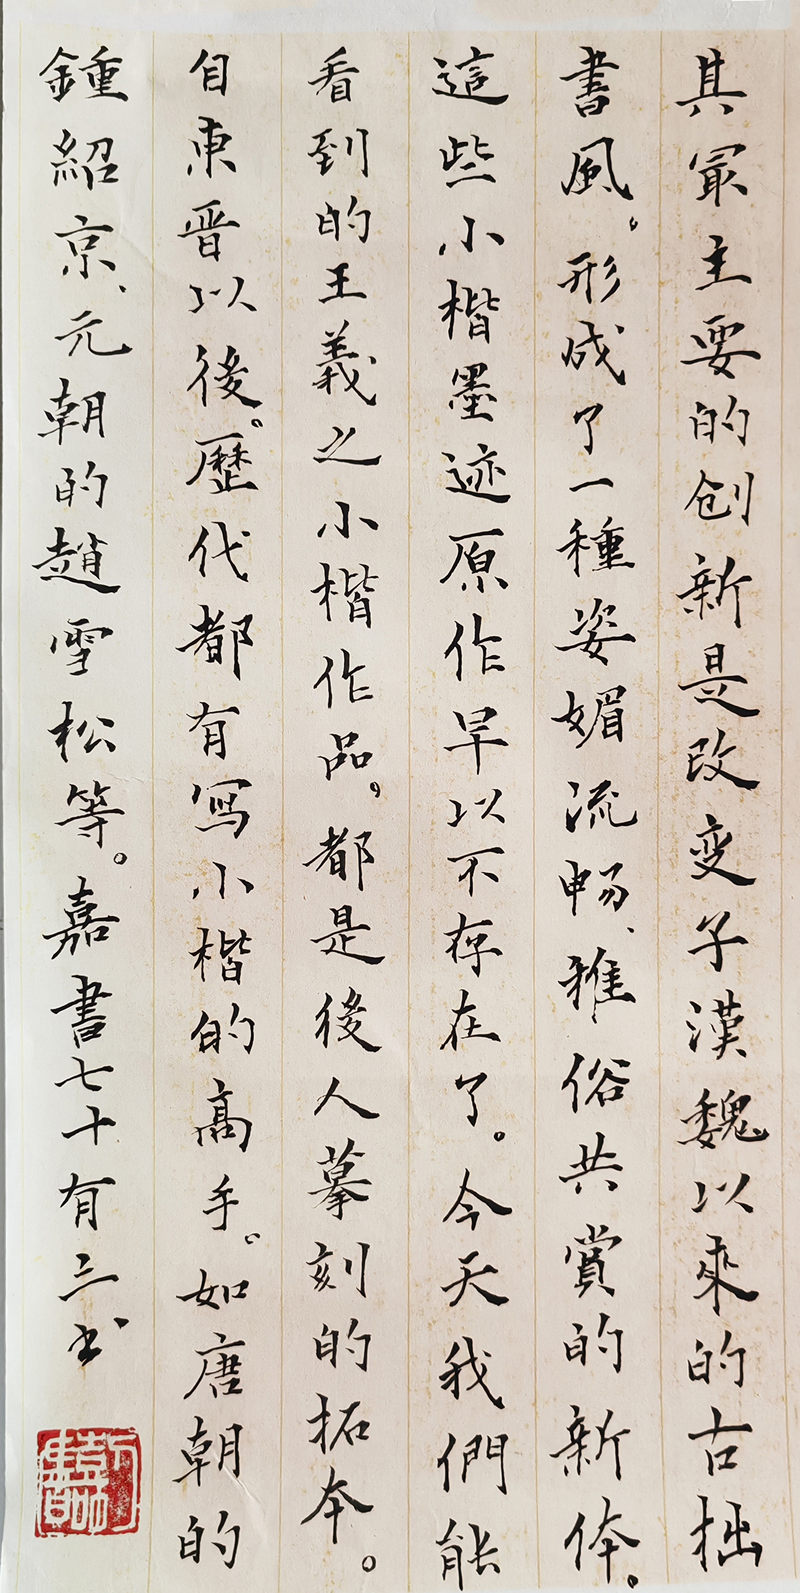 其最主要的创新是改变了漢魏以来的古拙
書風。形成了一種姿媚流畅、雅俗共賞的新体。
這些小楷墨迹原作早以不存在了。今天我們能
看到的王義之小楷作品，都是後人摹刻的拓本。
自東晋以後。歷代都有写小楷的高手。如唐朝的
鍾紹京、元朝的趙雪松等。嘉書七十有三书